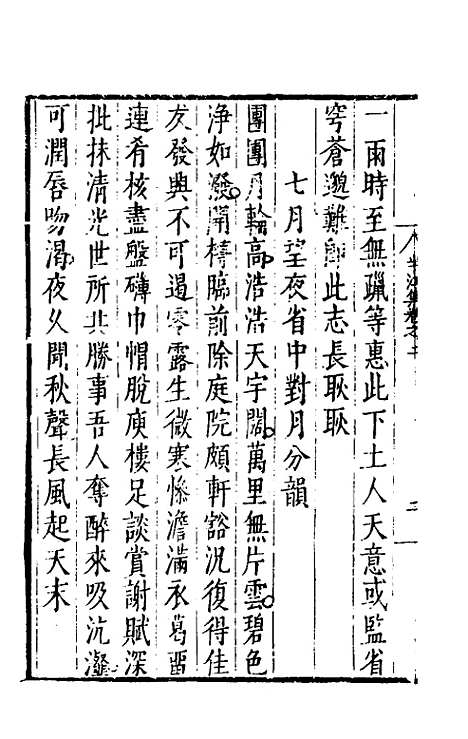 一雨時至無躐等惠此下土人天意或監省
穹蒼邈難卽此志長耿耿
七月望夜省中對月分韻
團團月輪高浩浩天宇闊萬里無片雲碧色
淨如潑開樽臨前除庭院頗軒豁況復得佳
友發興不可遏零露生微寒慘澹滿衣葛留
連肴核盡盤礴巾帽脫庾樓足談賞謝賦深
批抹清光世所共勝事吾人奪醉來吸沆瀣
可潤唇吻渴夜久聞秋聲長風起天末